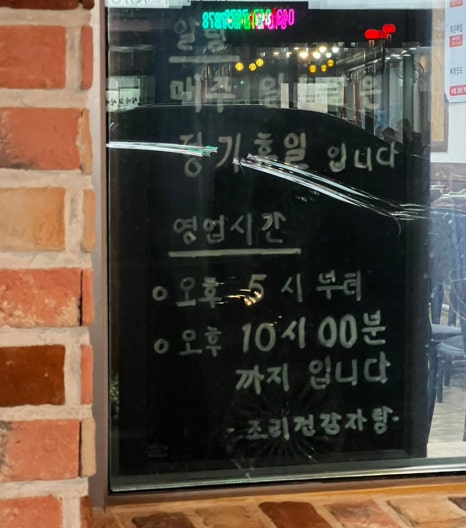 알림
매주 월요일은
정기휴일 입니다
영업시간
○오후 5시 부터
○오후 10시 00분
까지 입니다
-조리건강자탕-